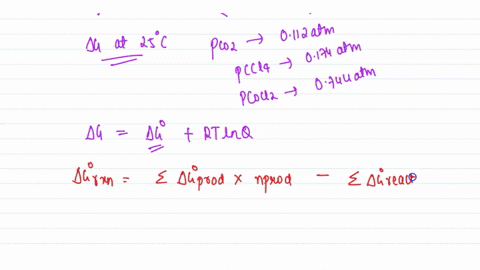 ΔG at 25°C
PCO2 → 0.112 atm
PCCl4 → 0.174 atm
PCOCl2 → 0.744 atm
ΔG = ΔG° + RT ln Q
ΔG°rxn = Σ ΔG°prod × nprod − Σ ΔG°reac